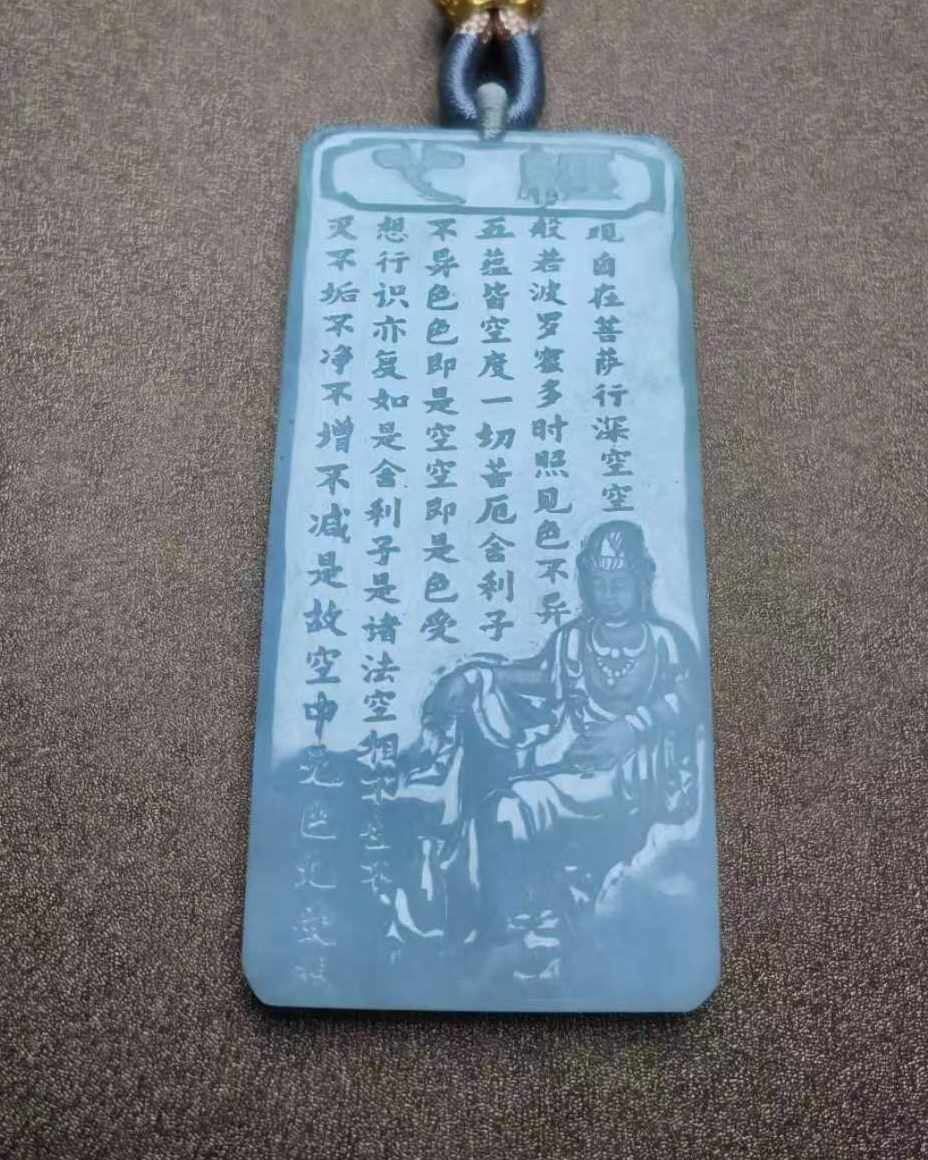 观自在菩萨行深空空
般若波罗蜜多时照见色不异
五蕴皆空度一切苦厄舍利子
不异色色即是空空即是色受
想行识亦复如是舍利子是诸法空相不生不
灭不垢不净不增不减是故空中无色无受想